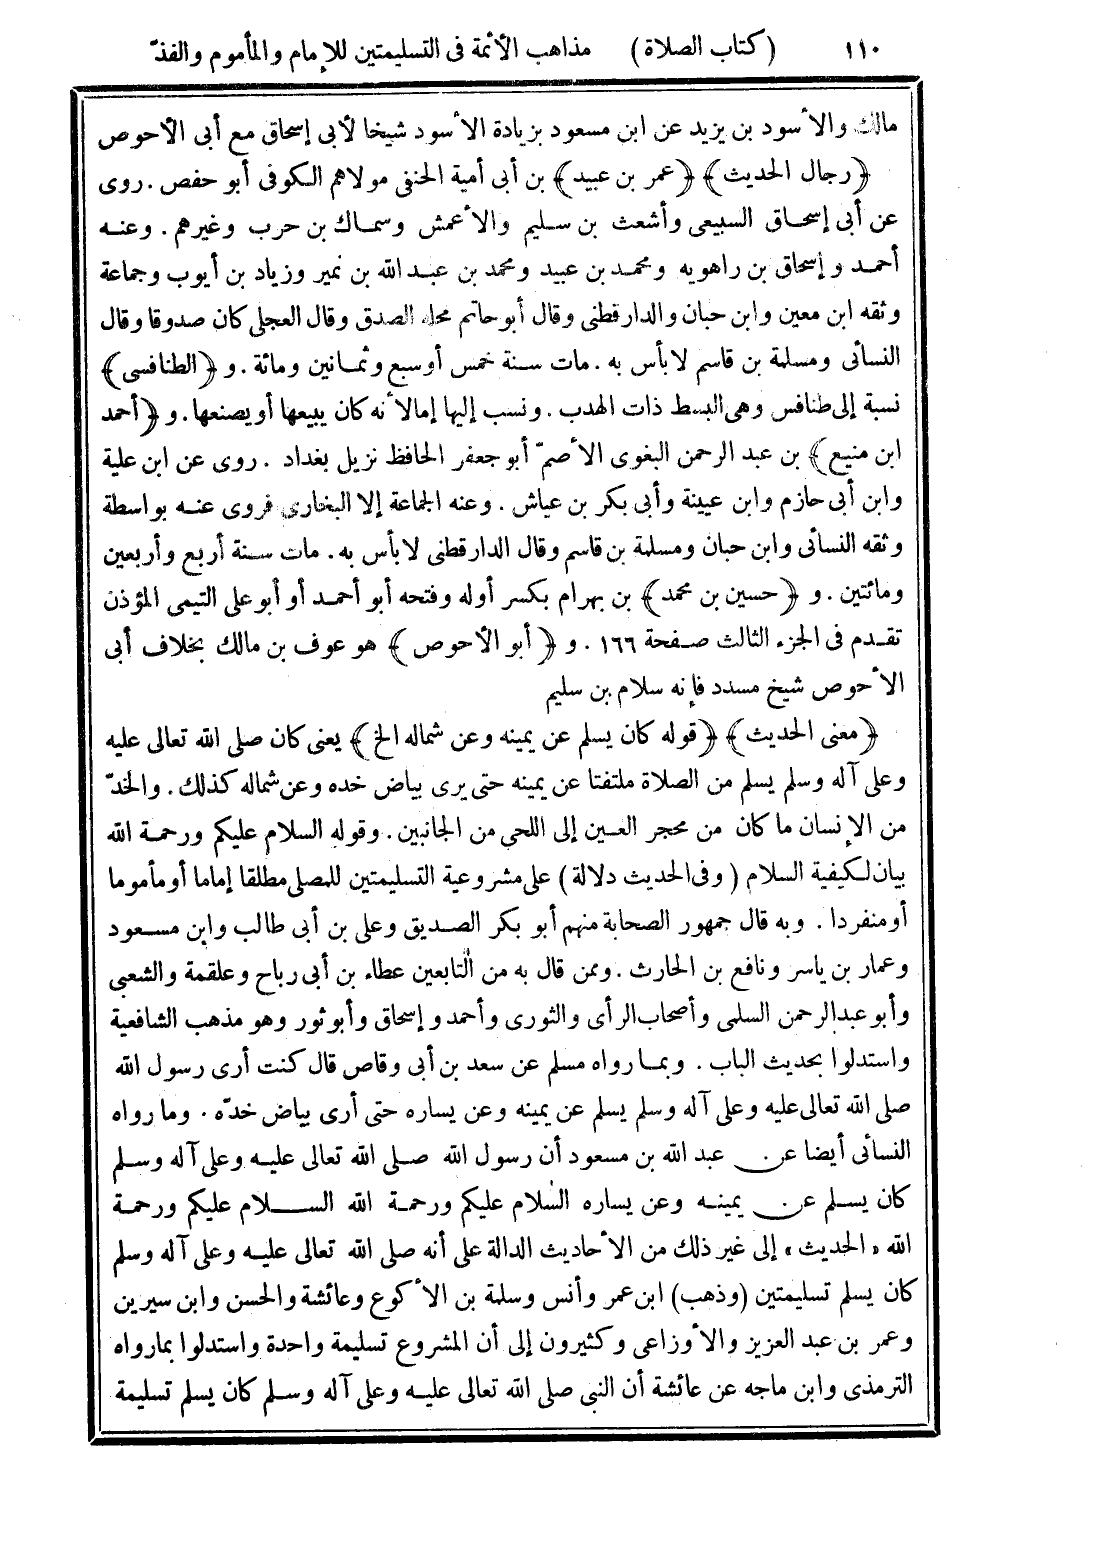 ١١٠ (كتاب الصلاة) مذاهب الأئمة فى التسليمتين للإمام والمأموم والفذّ
مالك والأسود بن يزيد عن ابن مسعود بزيادة الأسود شيخا لأبى إسحاق مع أبى الأحوص
﴿رجال الحديث﴾ ﴿عمر بن عبيد﴾ بن أبى أمية الحنفى مولاهم الكوفى أبو حفص. روى
عن أبى إسحاق السبيعى وأشعث بن سليم والأعمش وسماك بن حرب وغيرهم. وعنه
أحمد وإسحاق بن راهويه ومحمد بن عبيد ومحمد بن عبد الله بن نمير وزياد بن أيوب وجماعة
وثقه ابن معين وابن حبان والدارقطنى وقال أبو حاتم محله الصدق وقال العجلى كان صدوقا وقال
النسائى ومسلمة بن قاسم لا بأس به. مات سنة خمس أو سبع وثمانين ومائة. و ﴿الطنافسى﴾
نسبة إلى طنافس وهى البسط ذات الهدب. ونسب إليها إما لأنه كان يبيعها أو يصنعها. و ﴿أحمد
ابن منيع﴾ بن عبد الرحمن البغوى الأصمّ أبو جعفر الحافظ نزيل بغداد. روى عن ابن علية
وابن أبى حازم وابن عيينة وأبى بكر بن عياش. وعنه الجماعة إلا البخارى فروى عنه بواسطة
وثقه النسائى وابن حبان ومسلمة بن قاسم وقال الدارقطنى لا بأس به. مات سنة أربع وأربعين
ومائتين. و ﴿حسين بن محمد﴾ بن بهرام بكسر أوله وفتحه أبو أحمد أو أبو على التيمى المؤذن
تقدم فى الجزء الثالث صفحة ١٦٦. و ﴿أبو الأحوص﴾ هو عوف بن مالك بخلاف أبى
الأحوص شيخ مسدد فإنه سلام بن سليم
﴿معنى الحديث﴾ ﴿قوله كان يسلم عن يمينه وعن شماله الخ﴾ يعنى كان صلى الله تعالى عليه
وعلى آله وسلم يسلم من الصلاة ملتفتا عن يمينه حتى يرى بياض خده وعن شماله كذلك. والخدّ
من الإنسان ما كان من محجر العين إلى اللحى من الجانبين. وقوله السلام عليكم ورحمة الله
بيان لكيفية السلام (وفى الحديث دلالة) على مشروعية التسليمتين للمصلى مطلقا إماما أو مأموما
أو منفردا. وبه قال جمهور الصحابة منهم أبو بكر الصديق وعلى بن أبى طالب وابن مسعود
وعمار بن ياسر ونافع بن الحارث. وممن قال به من التابعين عطاء بن أبى رباح وعلقمة والشعبى
وأبو عبد الرحمن السلمى وأصحاب الرأى والثورى وأحمد وإسحاق وأبو ثور وهو مذهب الشافعية
واستدلوا بحديث الباب. وبما رواه مسلم عن سعد بن أبى وقاص قال كنت أرى رسول الله
صلى الله تعالى عليه وعلى آله وسلم يسلم عن يمينه وعن يساره حتى أرى بياض خدّه. وما رواه
النسائى أيضا عن عبد الله بن مسعود أن رسول الله صلى الله تعالى عليه وعلى آله وسلم
كان يسلم عن يمينه وعن يساره السلام عليكم ورحمة الله السلام عليكم ورحمة
الله «الحديث» إلى غير ذلك من الأحاديث الدالة على أنه صلى الله تعالى عليه وعلى آله وسلم
كان يسلم تسليمتين (وذهب) ابن عمر وأنس وسلمة بن الأكوع وعائشة والحسن وابن سيرين
وعمر بن عبد العزيز والأوزاعى وكثيرون إلى أن المشروع تسليمة واحدة واستدلوا بما رواه
الترمذى وابن ماجه عن عائشة أن النبى صلى الله تعالى عليه وعلى آله وسلم كان يسلم تسليمة